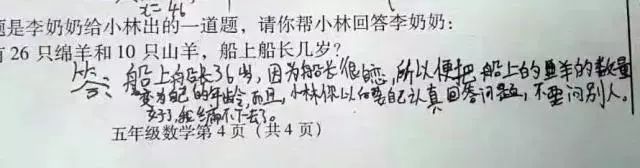 x=46
题是李奶奶给小林出的一道题,请你帮小林回答李奶奶:
有 26 只绵羊和 10 只山羊,船上船长几岁?
答:船上船长36岁,因为船长很恋,所以便把船上的羊的数量
变为自己的年龄,而且,小林你以后要自己认真回答问题,不要问别人。
好了,我编不下去了。
五年级数学第 4 页(共 4 页)